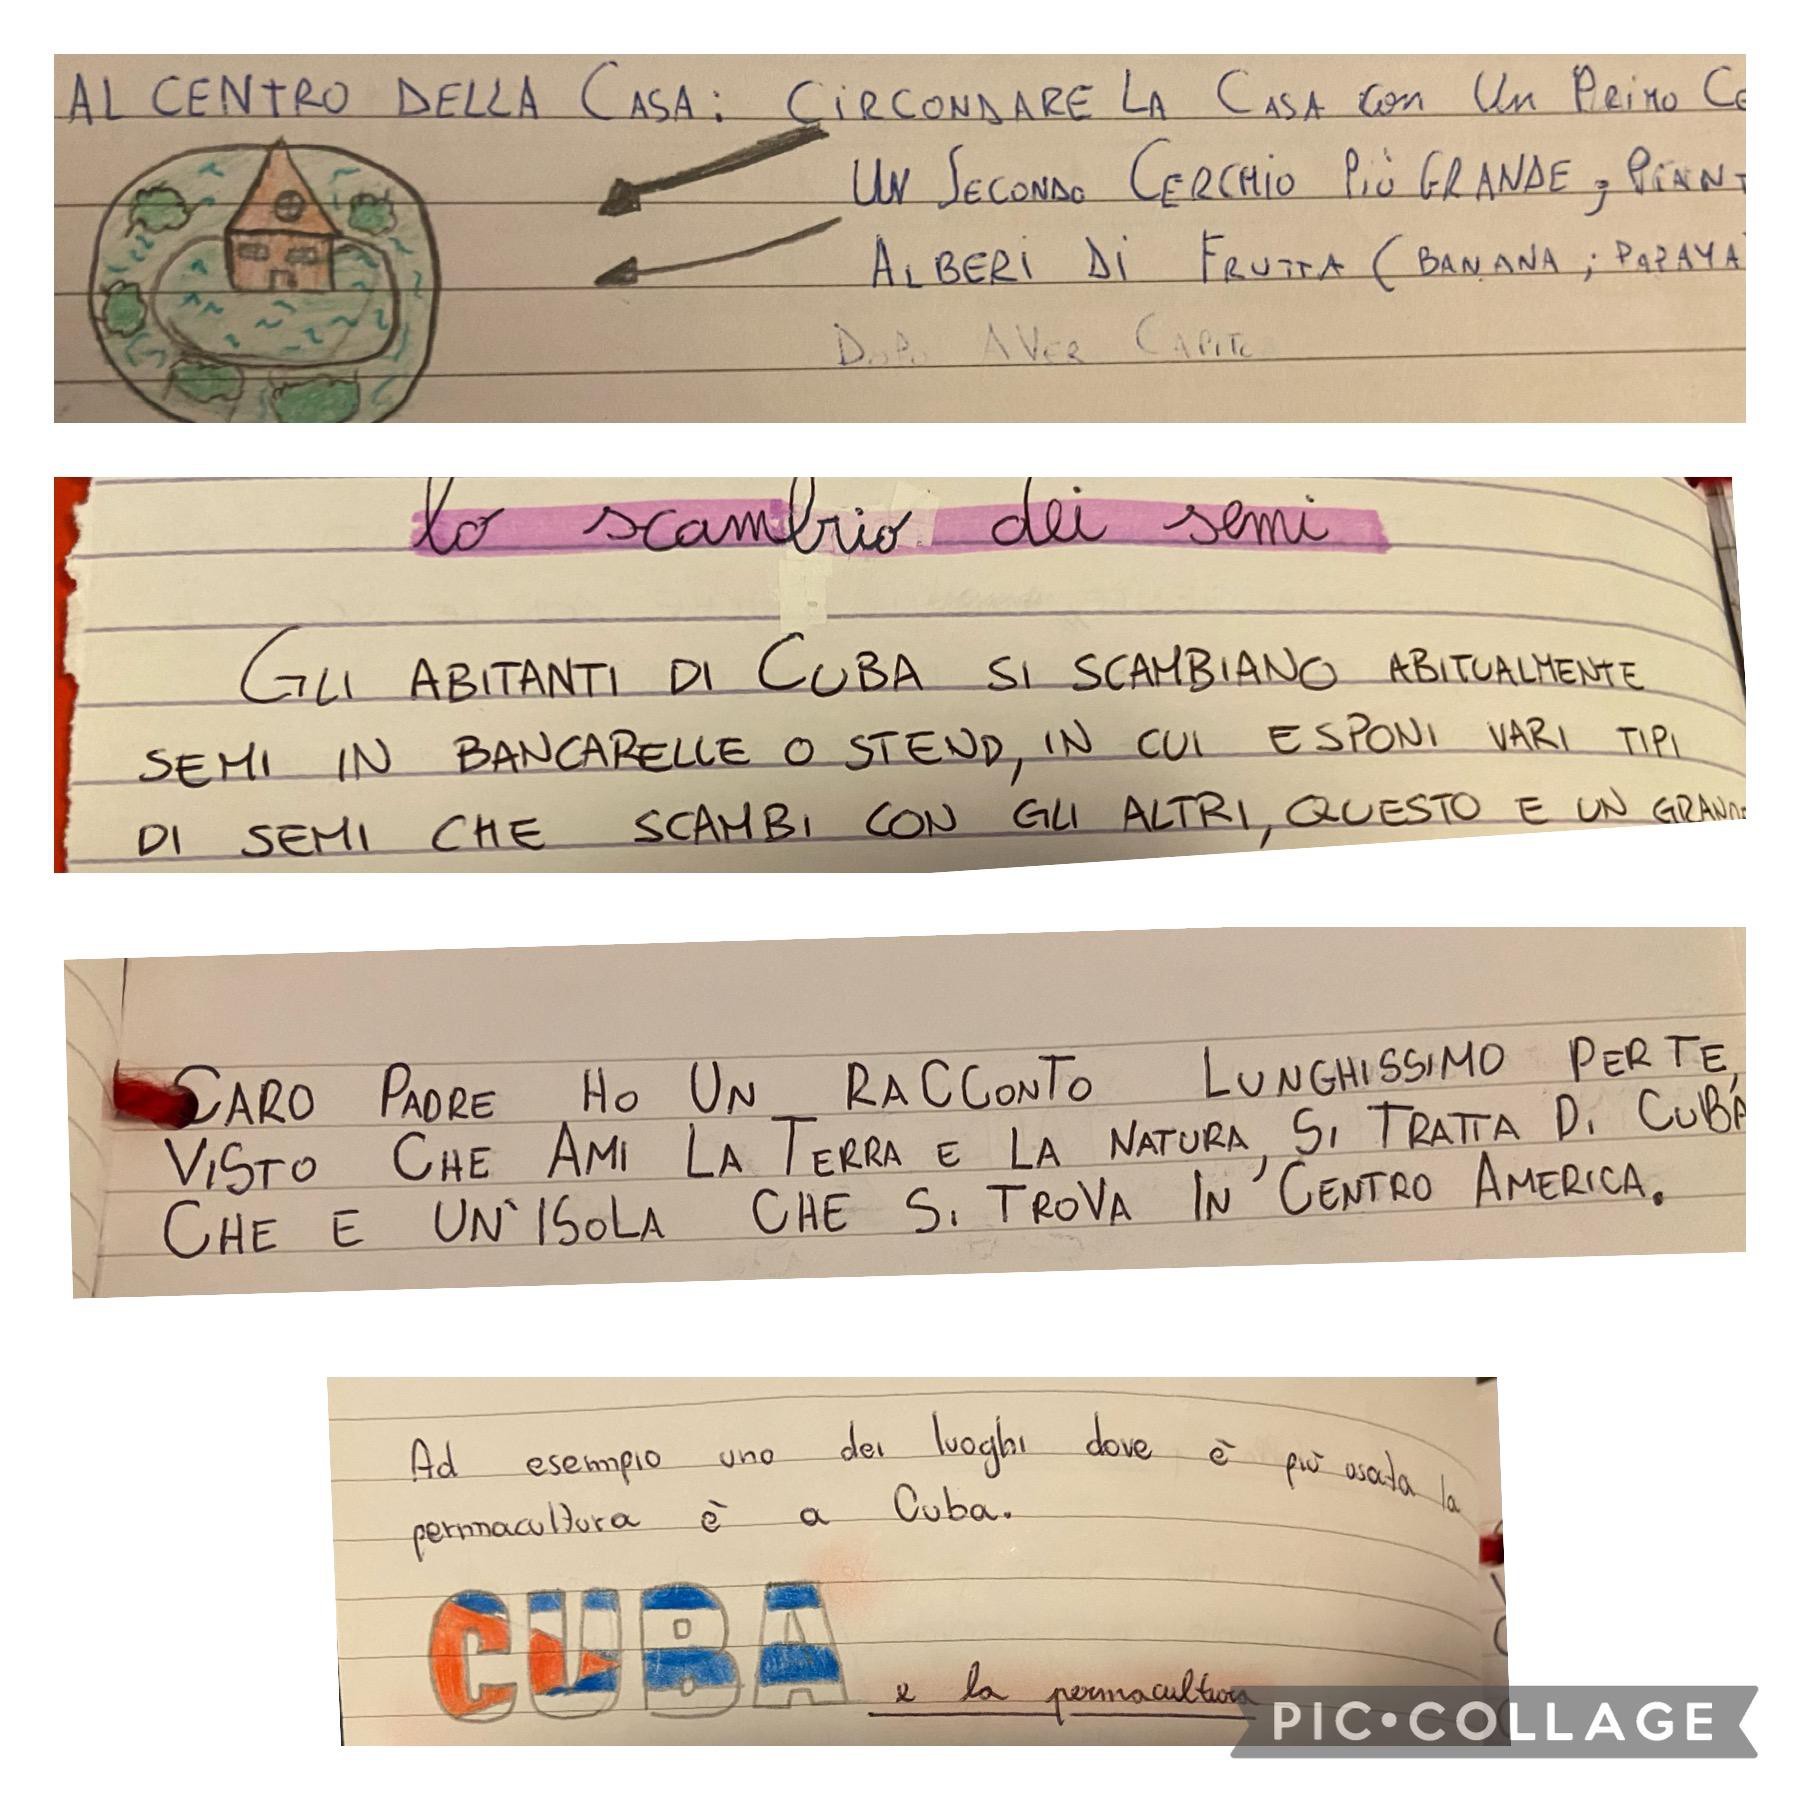 AL CENTRO DELLA CASA: CIRCONDARE LA CASA con Un PRIMO
UN SECONDO CERCHIO PIÙ GRANDE;
ALBERI DI FRUTTA (BANANA; PAPAYA
DOPO AVER CAPITO
lo scambio dei semi
GLI ABITANTI DI CUBA SI SCAMBIANO ABITUALMENTE
SEMI IN BANCARELLE O STEND, IN CUI ESPONI VARI TIPI
DI SEMI CHE SCAMBI CON GLI ALTRI, QUESTO E UN
CARO PADRE HO UN RACCONTO LUNGHISSIMO PER TE,
VISTO CHE AMI LA TERRA E LA NATURA, SI TRATTA DI CUBA
CHE E UN'ISOLA CHE SI TROVA IN CENTRO AMERICA.
Ad esempio uno dei luoghi dove è più usata la
permacultura è a Cuba.
CUBA e la permacultura
PIC•COLLAGE